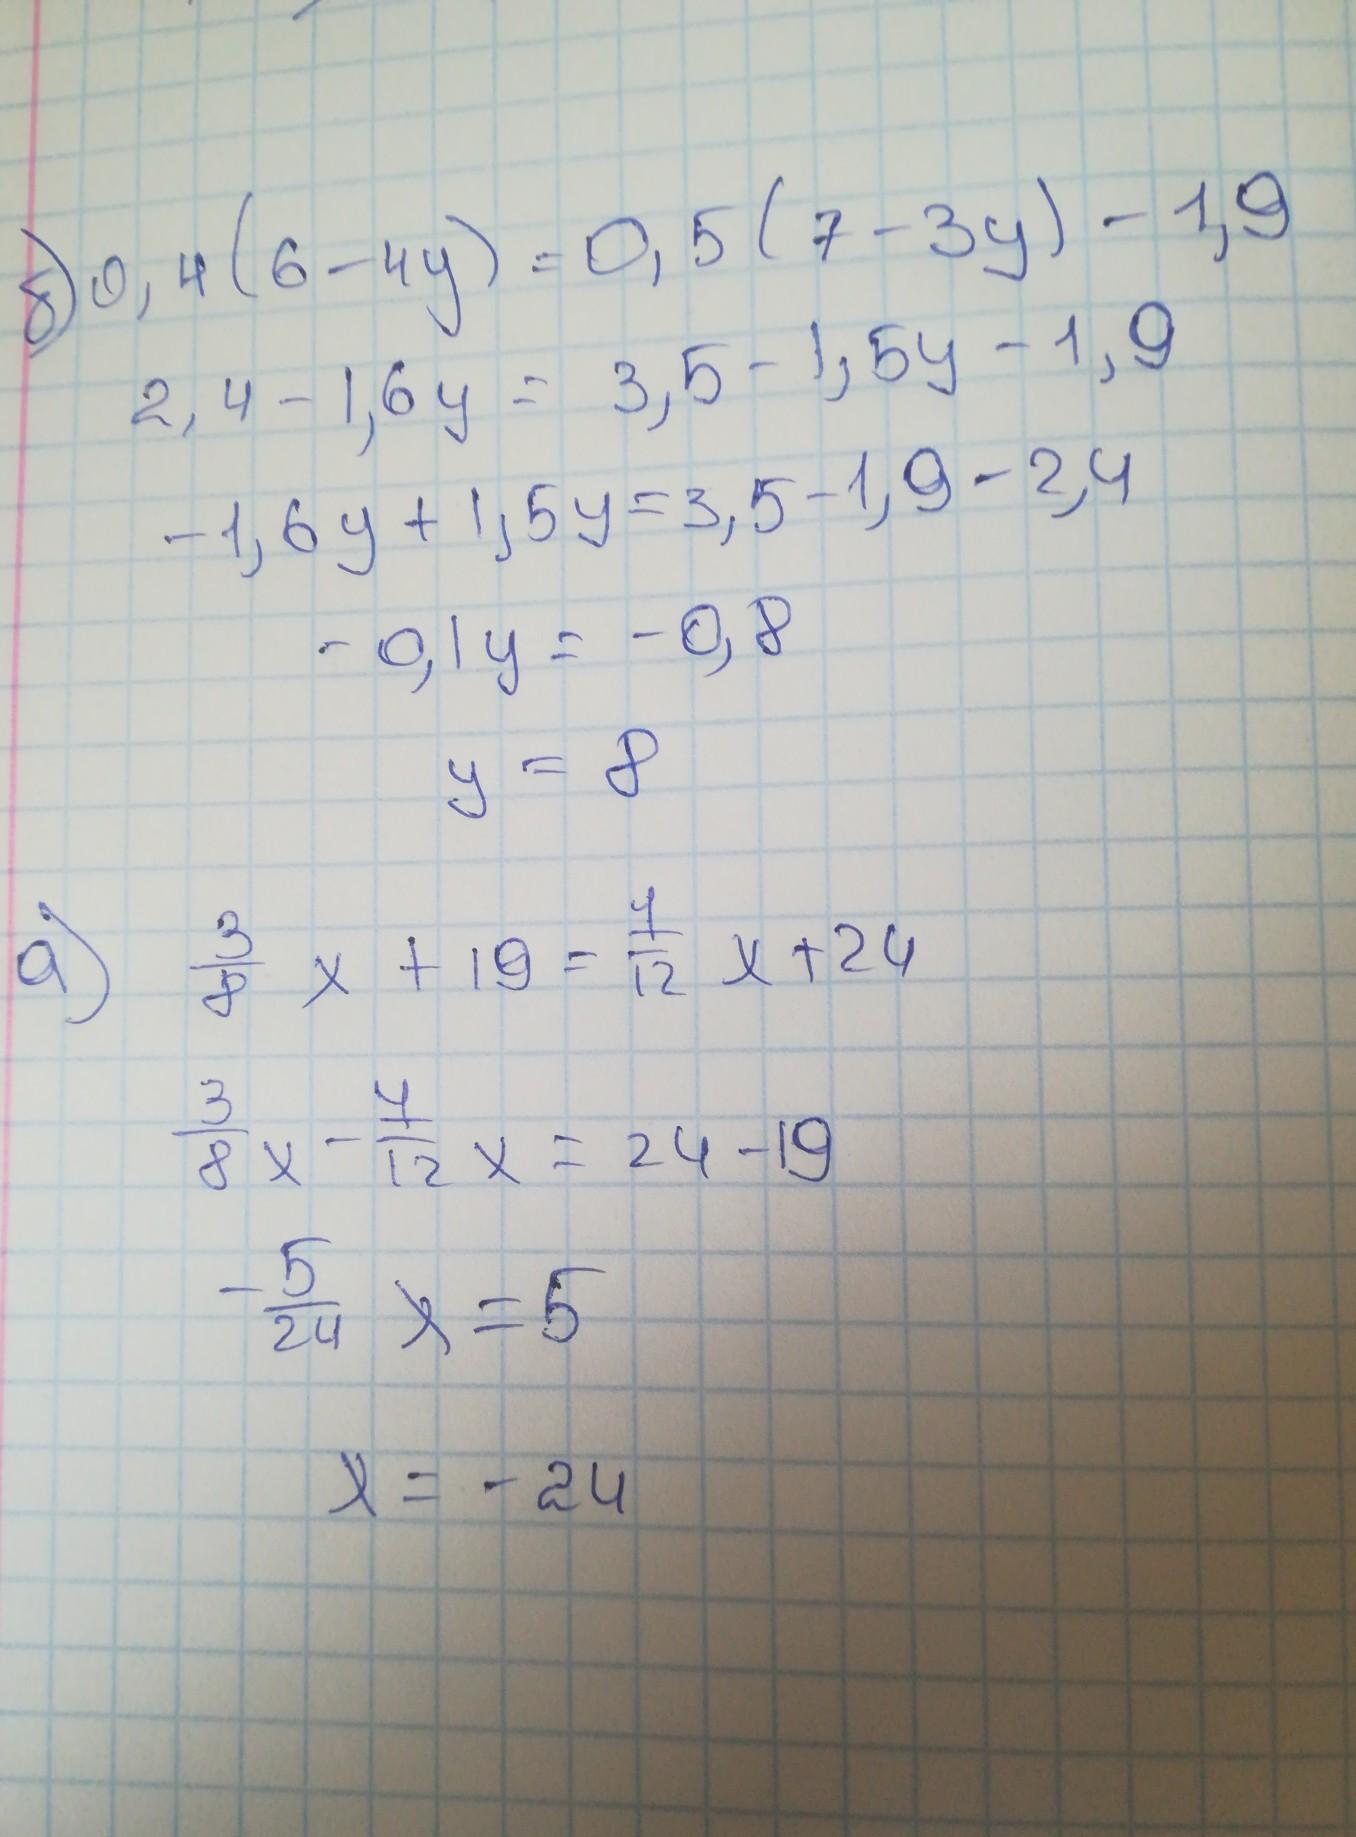 б) 0,4(6-4y) = 0,5(7-3y) - 1,9
2,4 - 1,6y = 3,5 - 1,5y - 1,9
-1,6y + 1,5y = 3,5 - 1,9 - 2,4
-0,1y = -0,8
y = 8
а) 3/8 x + 19 = 7/12 x + 24
3/8 x - 7/12 x = 24 - 19
-5/24 x = 5
x = -24